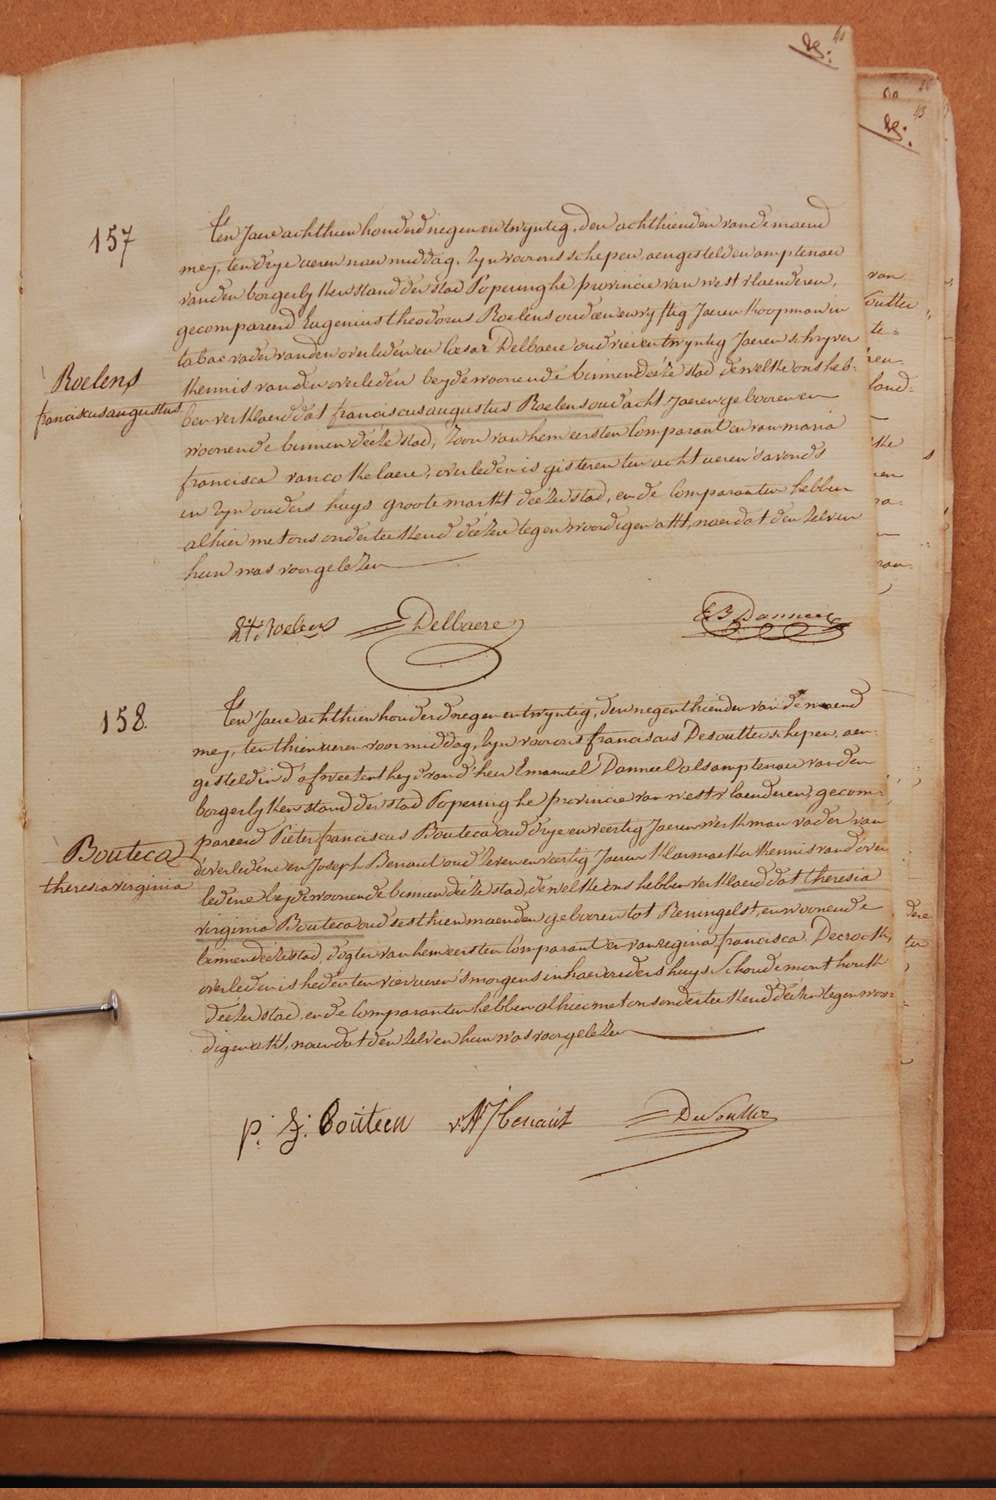 157
Roelens
franciscus augustus
Ten Jaere achthien honderd negen en twyntig, den achthienden van de maend
mey, ten drye ueren naermiddag, zyn voor ons schepen, aengestelden amptenaer
van den borgerlyken stand der stad Poperinghe provincie van westvlaenderen,
gecompareerd Eugenius theodorus Roelens oud een en vyftig Jaeren koopman in
tabac vader van den overleden en Cæsar Delbaere oud vier en twyntig Jaeren schryver
kennis van den overleden beyde woonende binnen deéze stad, dewelke ons heb-
ben verklaerd dat franciscus augustus Roelens oud acht Jaeren geboren en
woonende binnen déeze stad, Zoon van hem eersten Comparant en van maria
francisca van cothelaere, overleden is gisteren ten acht ueren s'avonds
in zyn ouders huys groote markt deézer stad, en de Comparanten hebben
alhier met ons onderteekend deézen tegenwoordigen akt, naer dat den zelven
hun was voorgelezen
Roelens
Delbaere
158.
Bouteca
theresia virginia
Ten Jaere achthien honderd negen en twyntig, den negenthienden van de maend
mey, ten thien ueren voormiddag, zyn voor ons franciscus Desoutter schepen, aen-
gesteld in d'afweezentheyd van d'heer Emanuel Danneel als amptenaer van den
borgerlyken stand der stad Poperinghe provincie van westvlaenderen, gecom-
pareerd Pieter franciscus Bouteca oud drye en veertig Jaeren werkman vader van
d'overledene en Joseph Benaut oud zeven en veertig Jaeren kennis van d'over
ledene beyde woonende binnen deéze stad, dewelke ons hebben verklaerd dat theresia
virginia Bouteca oud sesthien maenden geboren tot Reningelst, en woonende
binnen déeze stad, dogter van hem eersten Comparant en van regina francisca Decrock,
overleden is heden ten vier ueren s'morgens in haer ouders huys Schoudemont houk
deézer stad, en de Comparanten hebben alhier met ons onderteekend deézen tegenwoor-
digen akt, naer dat den zelven hun was voorgelezen
p: f: Bouteca
Benaut
Desoutter